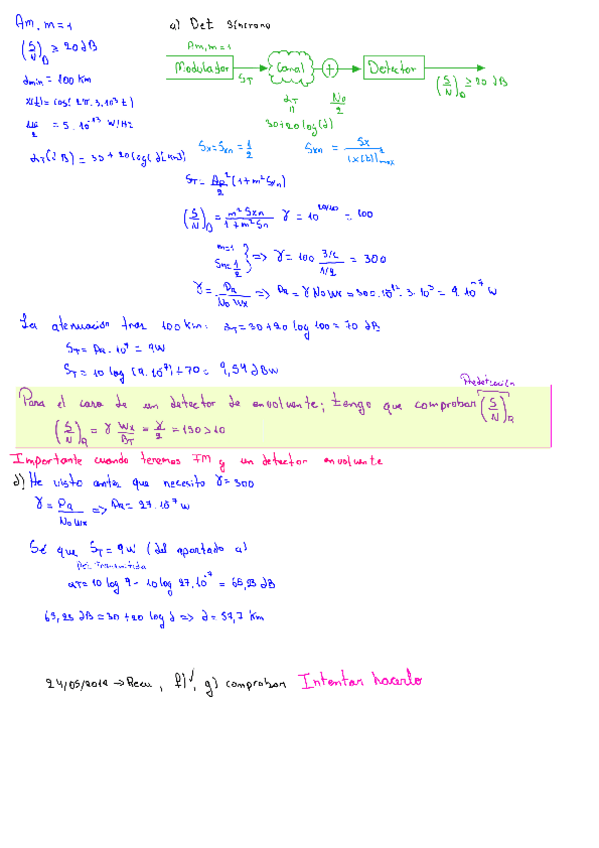 Am, m=1
a) Det Síncrono
(S/N)_D ≥ 20 dB
dmin = 100 Km
x(t)=cos(2π.3.10³t)
No/2 = 5.10^-13 W/Hz
α_T(dB) = 30 + 20 log(d[km])
Am, m=1
Modulador
S_T
Canal
+
Detector
(S/N)_D ≥ 20 dB
α_T
No/2
30+20log(d)
Sx=Sxn=1/2
Sxn = Sx/|x(t)|²max
S_T = A_c²/2 (1+m²Sxn)
(S/N)_D = m²Sxn/(1+m²Sxn) γ = 10^(20/10) = 100
m=1
Sn=1/2
=> γ = 100 (3/2)/(1/2) = 300
γ = P_R/(No Wx) => P_R = γ No Wx = 300.10^-12.3.10³ = 9.10^-7 W
La atenuación tras 100 km: α_T=30+20 log 100=70 dB
S_T = P_R.10⁷ = 9W
S_T = 10 log(9.10^-7)+70= 9,54 dBW
Predetección
Para el caso de un detector de envolvente; tengo que comprobar (S/N)_R
(S/N)_R = γ Wx/B_T = γ/2 = 150>10
Importante cuando tenemos FM y un detector envolvente
d) He visto antes que necesito γ=300
γ = P_R/(No Wx) => P_R= 27.10^-7 W
Sé que S_T=9W (del apartado a)
Pot. Transmitida
α_T=10 log 9 - 10 log 27.10^-7 = 65,23 dB
65,23 dB = 30 +20 log d => d= 57,7 Km
24/05/2018 → Recu, f)✓, g) comprobar Intentar hacerlo